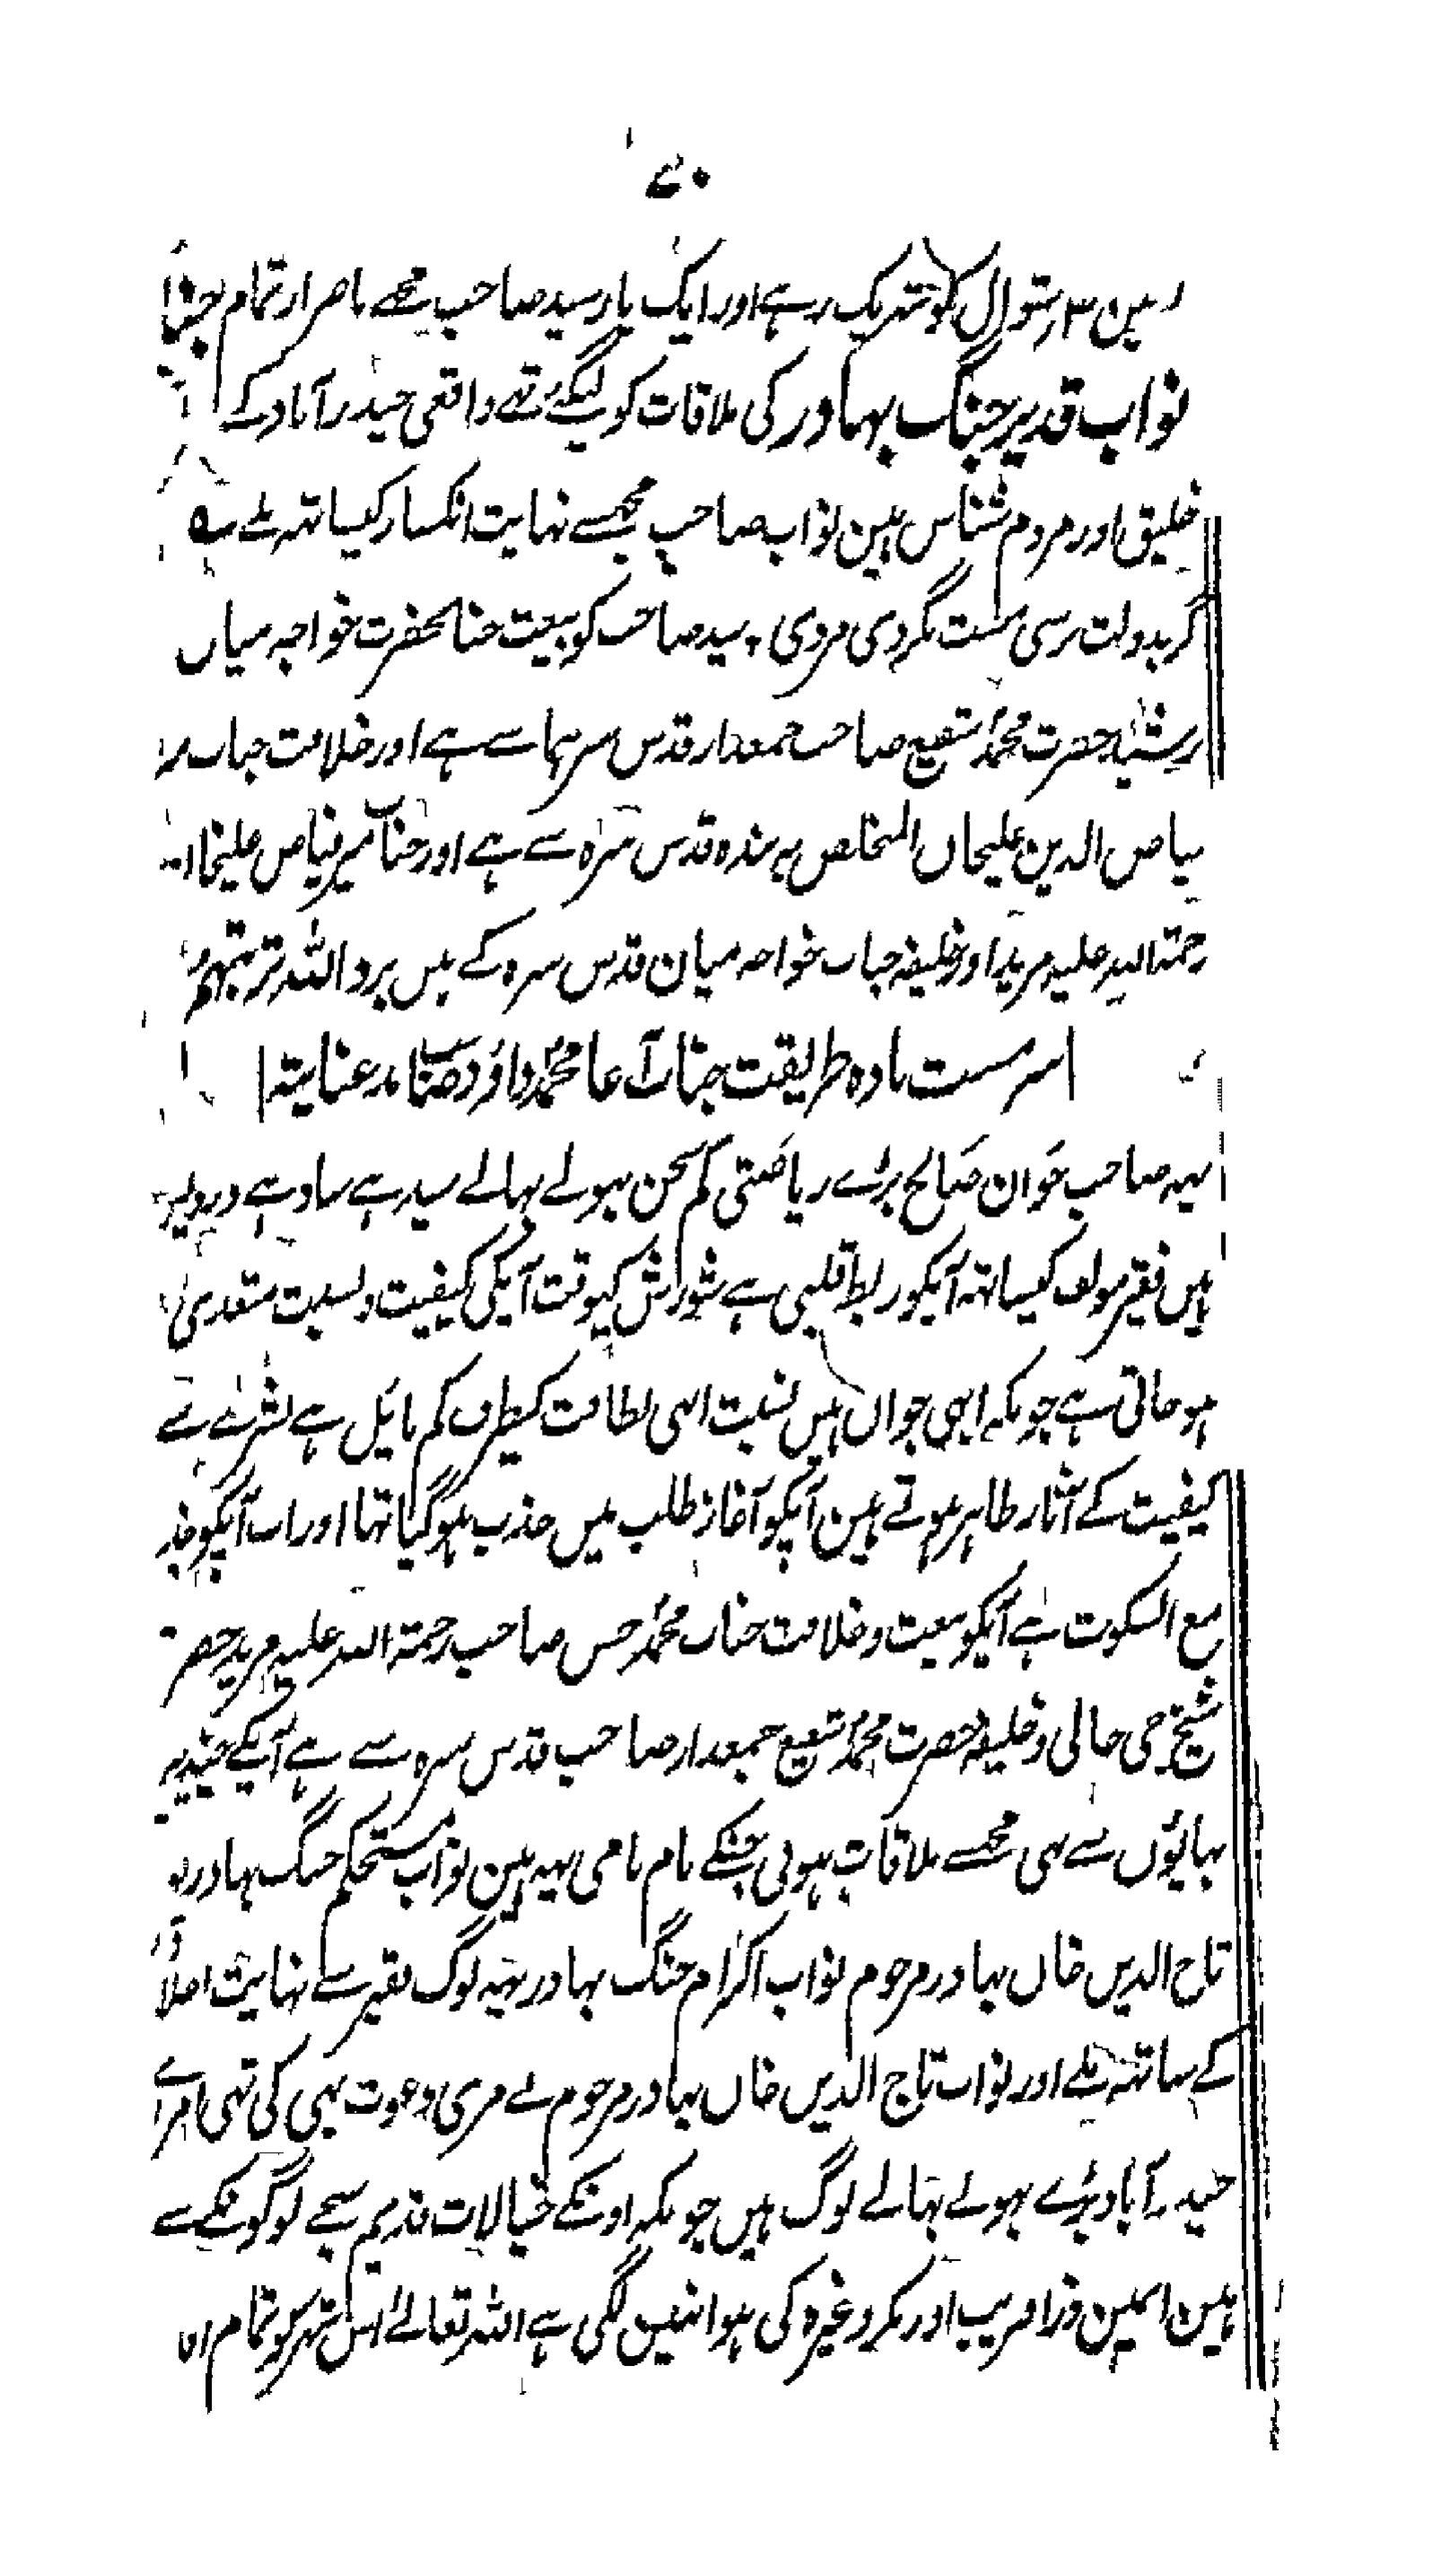 ۷۰
مین ۳ شوال کو شریک رہے اور ایک بار سید صاحب مجھے باصرار تمام جناب
نواب قدیر جنگ بہادر کی ملاقات کو لیگئے تھے واقعی حیدرآباد کے
خلیق اور مردم شناس ہین نواب صاحب مجھسے نہایت انکسار کیساتہ ملے
گر بدولت رسی مست نگردی مردی ٭ سید صاحب کو بیعت جناب حضرت خواجہ میاں
حضرت محمد شفیع صاحب جمعدار قدس سرہما سے ہے اور خلافت جناب
الدین علیخاں المتخلص بہ بندہ قدس سرہ سے ہے اور جناب میر فیاض علیخان
رحمتہ اللہ علیہ مرید اور خلیفہ جناب خواجہ میان قدس سرہ کے ہیں برد اللہ تربتہم
سرمست بادہ طریقت جناب آغا محمد داؤد صاحب مد عنایتہ
یہہ صاحب جوان صالح بڑے ریاضتی کم سخن بہولے بہالے سیدہے سادہے
ہیں فقیر مولف کیساتہ آپکو ربط قلبی ہے شورش کیوقت آپکی کیفیت و نسبت متعدی
ہو جاتی ہے چونکہ ابہی جواں ہیں نسبت ابہی لطافت کیطرف کم مائل ہے بشرے سے
کیفیت کے آثار ظاہر ہوتے ہین آپکو آغاز طلب میں جذب ہو گیا تہا اور اب آپکو جذب
مع السکوت ہے آپکو بیعت و خلافت جناب محمد حسن صاحب رحمتہ اللہ علیہ مرید حضرت
شیخ جی حالی و خلیفہ حضرت محمد شفیع جمعدار صاحب قدس سرہ سے ہے آپکے چند پیر
بہائیوں سے بہی مجھسے ملاقات ہوئی جنکے نام نامی یہہ ہین نواب مستحکم جنگ بہادر
تاج الدین خاں بہادر مرحوم نواب اکرام جنگ بہادر یہہ لوگ فقیر سے نہایت اخلاق
کے ساتہہ ملے اور نواب تاج الدیں خاں بہادر مرحوم نے مری دعوت بہی کی تہی امرائے
حیدرآباد بڑے بہولے بہالے لوگ ہیں چونکہ اونکے خیالات قدیم سچے لوگونکے سے
ہین انہین ذرا فریب اور مکر وغیرہ کی ہوا نہیں لگی ہے اللہ تعالےٰ اس شہر کو تمام